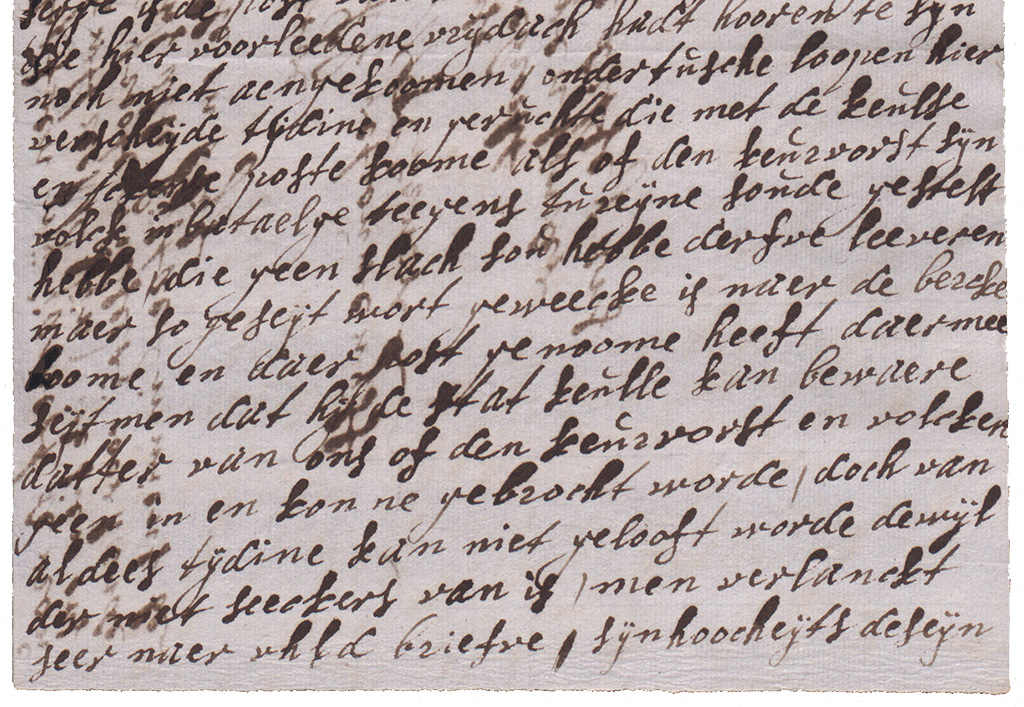 die hier voorleedene vrijdach hadt hooren te syn
noch niet aengekoomen, ondertusche loopen hier
verscheijde tijdine en geruchte die met de keulse
en poste koome als of den keurvorst syn
volck in bataelge teegens tureyne soude gestelt
hebbe, die geen slach sou hebbe derfve leeveren
maer so geseijt wort geweecke is naer de bercke
boome en daer post genoome heeft daermee
seijtmen dat hij de stat keulle kan bewaere
datter van ons of den keurvorst en volcken
geen in en konne gebrocht worde, doch van
al dees tijdine kan niet gelooft worde dewijl
der niet seeckers van is, men verlanckt
seer naer uhEd briefve, syn hoocheijts deseijn